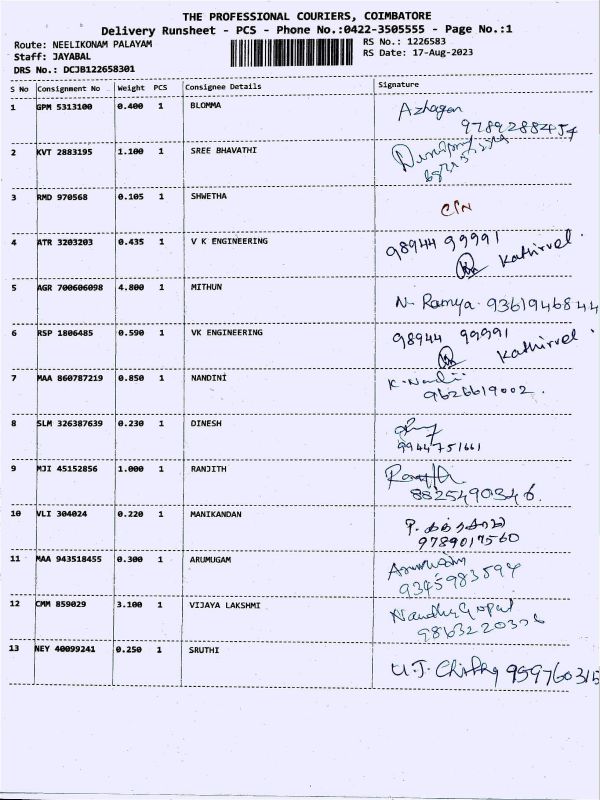 THE PROFESSIONAL COURIERS, COIMBATORE
Delivery Runsheet - PCS - Phone No.:0422-3505555 - Page No.:1
Route: NEELIKONAM PALAYAM
Staff: JAYABAL
DRS No.: DCJB122658301
RS No.: 1226583
RS Date: 17-Aug-2023
S No Consignment No Weight PCS Consignee Details Signature
1 GPM 5313100 0.400 1 BLOMMA Azhagan
9789288454
2 KVT 2883195 1.100 1 SREE BHAVATHI
3 RMD 970568 0.105 1 SHWETHA
4 ATR 3203203 0.435 1 V K ENGINEERING 98944 99991
Kathirvel.
5 AGR 700606098 4.800 1 MITHUN N. Ramya. 9361946844
6 RSP 1806485 0.590 1 VK ENGINEERING 98944 99991
Kathirvel.
7 MAA 860787219 0.850 1 NANDINI
9626619002.
8 SLM 326387639 0.230 1 DINESH
9944751661
9 MJI 45152856 1.000 1 RANJITH
8825490346.
10 VLI 304024 0.220 1 MANIKANDAN
9789017560
11 MAA 943518455 0.300 1 ARUMUGAM
9345983594
12 CMM 859029 3.100 1 VIJAYA LAKSHMI Nandha Gopal
13 NEY 40099241 0.250 1 SRUTHI U.J. 959760315